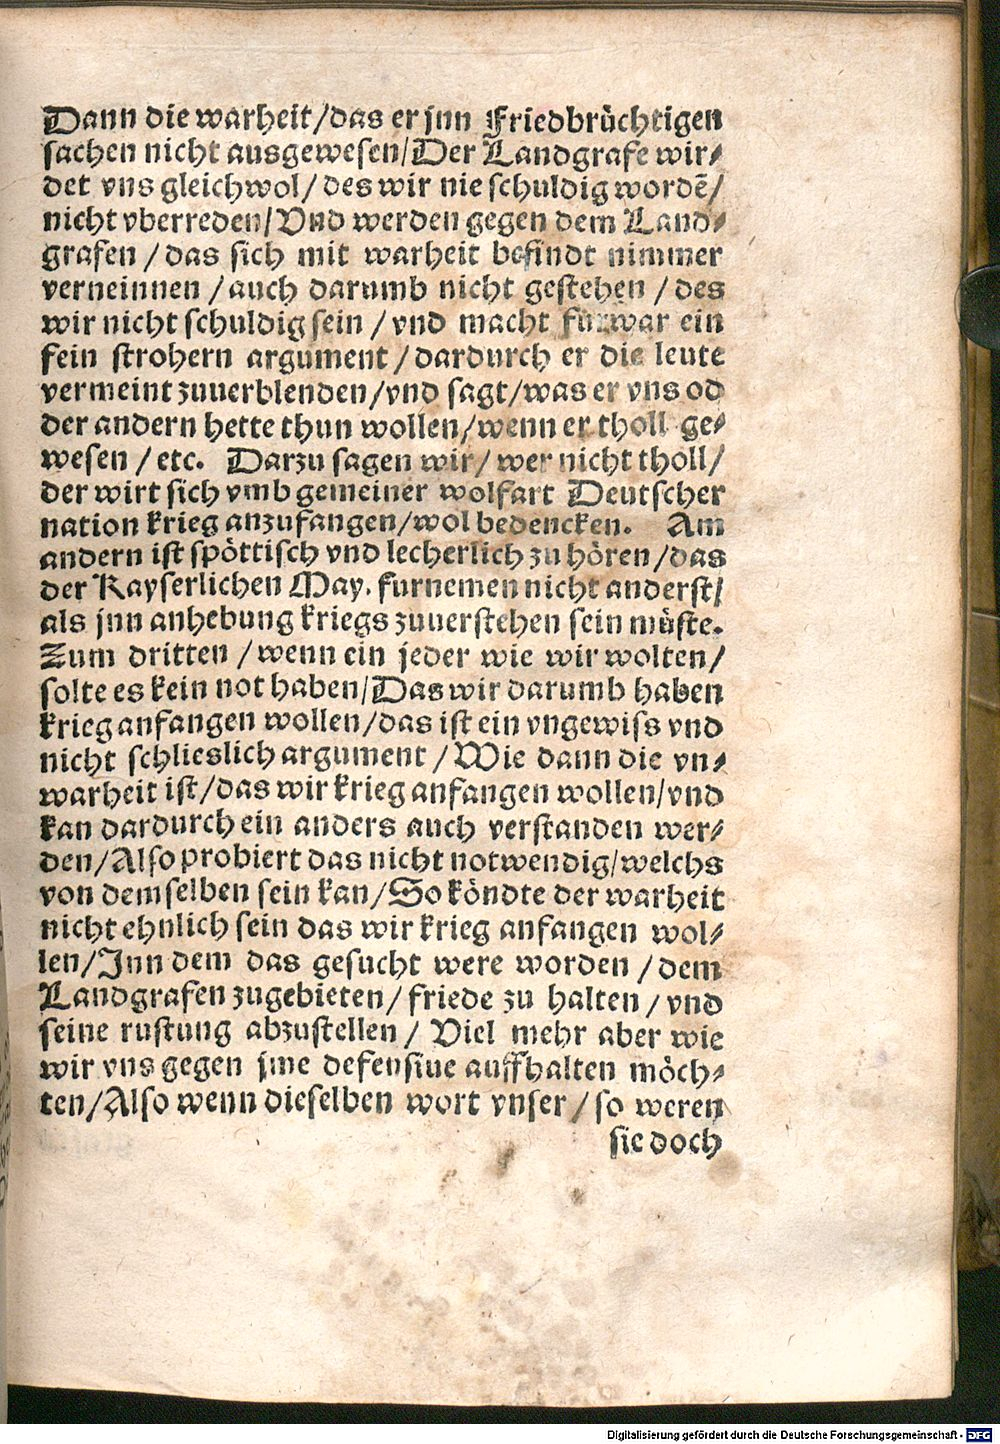 Dann die warheit/das er jnn Friedbrüchtigen
sachen nicht ausgewesen/Der Landgrafe wir⸗
det vns gleichwol/des wir nie schuldig wordē/
nicht vberreden/Vnd werden gegen dem Land⸗
grafen/das sich mit warheit befindt nimmer
verneinnen/auch darumb nicht gestehen/des
wir nicht schuldig sein/vnd macht fürwar ein
fein strohern argument/dardurch er die leute
vermeint zuuerblenden/vnd sagt/was er vns od
der andern hette thun wollen/wenn er tholl ge⸗
wesen/etc. Darzu sagen wir/wer nicht tholl/
der wirt sich vmb gemeiner wolfart Deutscher
nation krieg anzufangen/wol bedencken. Am
andern ist spöttisch vnd lecherlich zu hören/das
der Kayserlichen May. furnemen nicht anderst/
als jnn anhebung kriegs zuuerstehen sein müste.
Zum dritten/wenn ein jeder wie wir wolten/
solte es kein not haben/Das wir darumb haben
krieg anfangen wollen/das ist ein vngewiss vnd
nicht schlieslich argument/Wie dann die vn⸗
warheit ist/das wir krieg anfangen wollen/vnd
kan dardurch ein anders auch verstanden wer⸗
den/Also probiert das nicht notwendig/welchs
von demselben sein kan/So köndte der warheit
nicht ehnlich sein das wir krieg anfangen wol⸗
len/Inn dem das gesucht were worden/dem
Landgrafen zugebieten/friede zu halten/vnd
seine rustung abzustellen/Viel mehr aber wie
wir vns gegen jme defensiue auffhalten möch⸗
ten/Also wenn dieselben wort vnser/so weren
sie doch
Digitalisierung gefördert durch die Deutsche Forschungsgemeinschaft - DFG